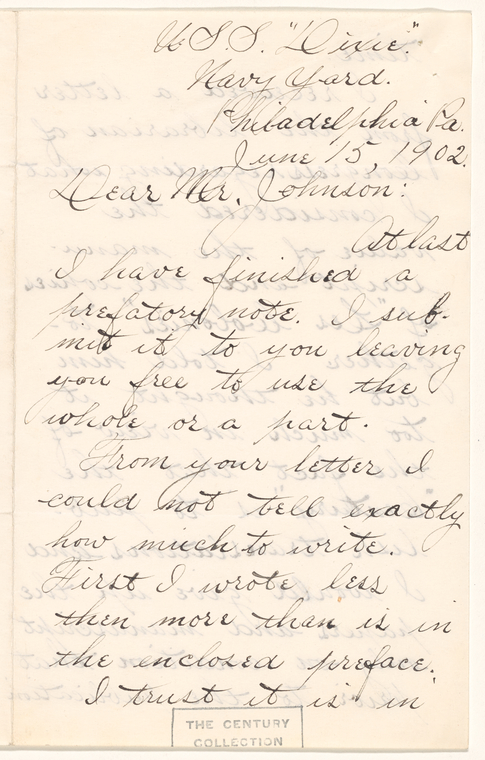 U.S.S. "Dixie."
Navy Yard.
Philadelphia Pa.
June 15, 1902.
Dear Mr. Johnson:
At last
I have finished a
prefatory note. I sub-
mit it to you leaving
you free to use the
whole or a part.
From your letter I
could not tell exactly
how much to write.
First I wrote less
then more than is in
the enclosed preface.
I trust it is in
THE CENTURY
COLLECTION